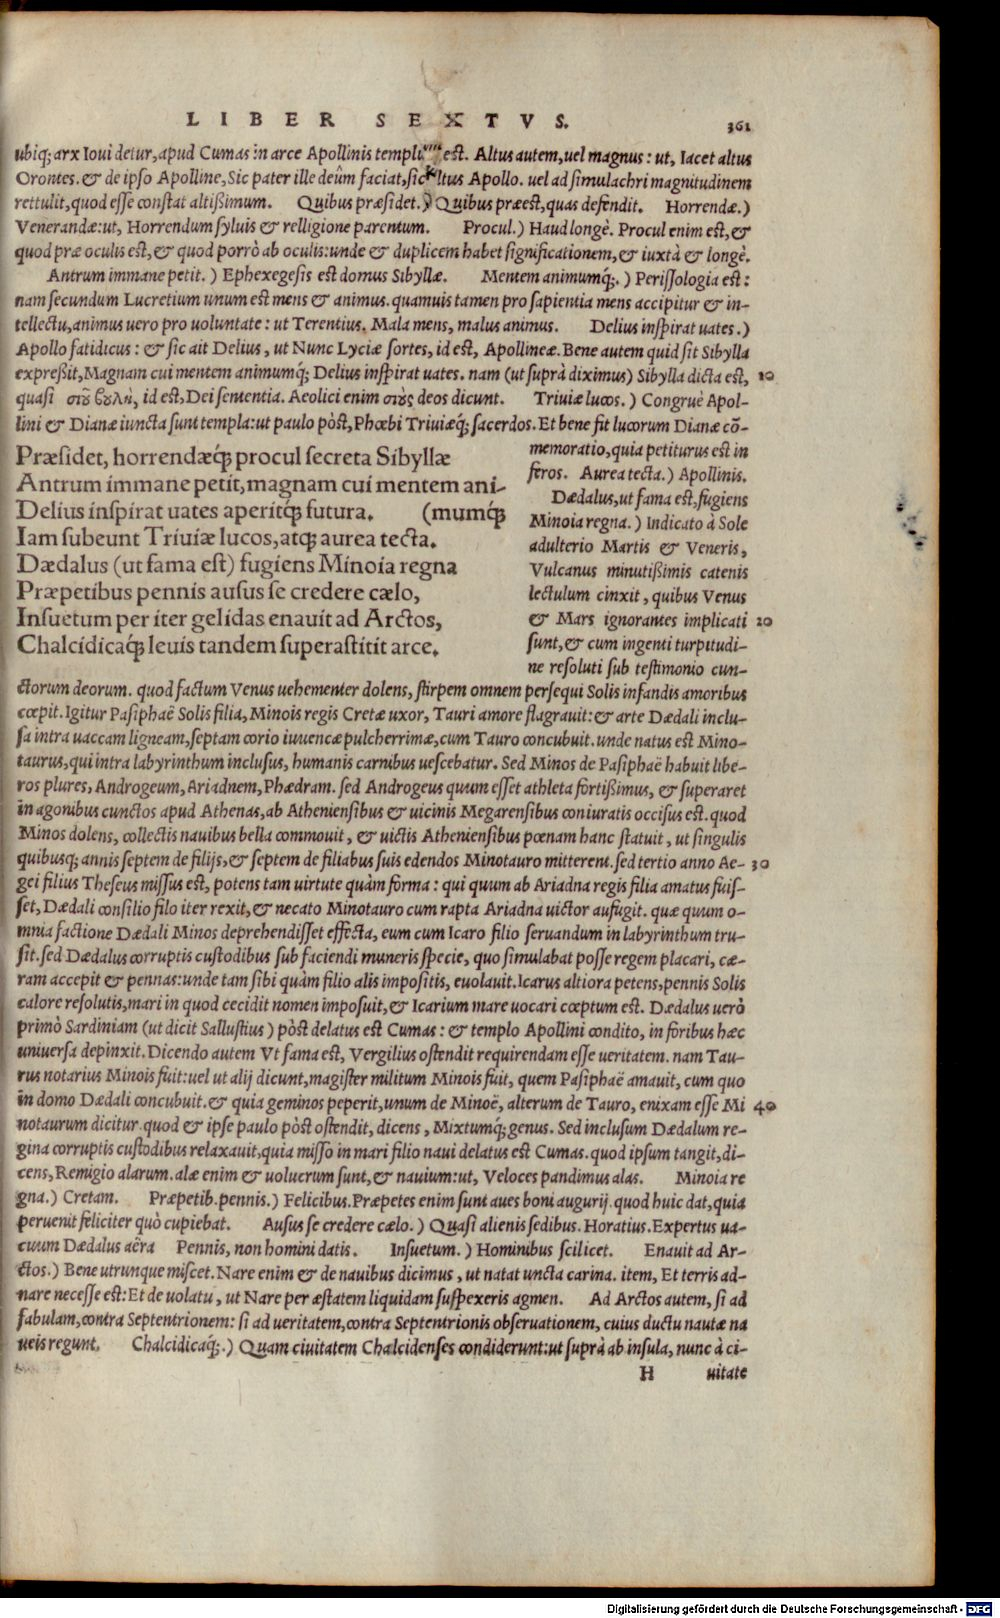 LIBER SEXTVS. 361
ubiq; arx Ioui detur, apud Cumas in arce Apollinis templum est. Altus autem, uel magnus: ut, Iacet altus
Orontes. & de ipso Apolline, Sic pater ille deûm faciat, sic altus Apollo. uel ad simulachri magnitudinem
rettulit, quod esse constat altißimum. Quibus præsidet.) Quibus præest, quas defendit. Horrendæ.)
Venerandæ: ut, Horrendum syluis & relligione parentum. Procul.) Haud longè. Procul enim est, &
quod præ oculis est, & quod porrò ab oculis: unde & duplicem habet significationem, & iuxtà & longè.
Antrum immane petit.) Ephexegesis est domus Sibyllæ. Mentem animumq́;.) Perissologia est:
nam secundum Lucretium unum est mens & animus. quamuis tamen pro sapientia mens accipitur & in-
tellectu, animus uero pro uoluntate: ut Terentius. Mala mens, malus animus. Delius inspirat uates.)
Apollo fatidicus: & sic ait Delius, ut Nunc Lyciæ sortes, id est, Apollineæ. Bene autem quid sit Sibylla
expreßit, Magnam cui mentem animumq́; Delius inspirat uates. nam (ut suprà diximus) Sibylla dicta est, 10
quasi σιοῦ βουλὴ, id est, Dei sententia. Aeolici enim σιοὺς deos dicunt. Triuiæ lucos.) Congruè Apol-
lini & Dianæ iuncta sunt templa: ut paulo pòst, Phœbi Triuiæq́; sacerdos. Et bene fit lucorum Dianæ cō-
Præsidet, horrendæq́; procul secreta Sibyllæ
Antrum immane petit, magnam cui mentem ani-
Delius inspirat uates aperitq́; futura. (mumq́;
Iam subeunt Triuiæ lucos, atq; aurea tecta.
Dædalus (ut fama est) fugiens Minoia regna
Præpetibus pennis ausus se credere cælo,
Insuetum per iter gelidas enauit ad Arctos,
Chalcidicaq́; leuis tandem superastitit arce.
memoratio, quia petiturus est in
feros. Aurea tecta.) Apollinis.
Dædalus, ut fama est, fugiens
Minoia regna.) Indicato à Sole
adulterio Martis & Veneris,
Vulcanus minutißimis catenis
lectulum cinxit, quibus Venus
& Mars ignorantes implicati 20
sunt, & cum ingenti turpitudi-
ne resoluti sub testimonio cun-
ctorum deorum. quod factum Venus uehementer dolens, stirpem omnem persequi Solis infandis amoribus
cœpit. Igitur Pasiphaë Solis filia, Minois regis Cretæ uxor, Tauri amore flagrauit: & arte Dædali inclu-
sa intra uaccam ligneam, septam corio iuuencæ pulcherrimæ, cum Tauro concubuit. unde natus est Mino-
taurus, qui intra labyrinthum inclusus, humanis carnibus uescebatur. Sed Minos de Pasiphaë habuit libe-
ros plures, Androgeum, Ariadnem, Phædram. sed Androgeus quum esset athleta fortißimus, & superaret
in agonibus cunctos apud Athenas, ab Atheniensibus & uicinis Megarensibus coniuratis occisus est. quod
Minos dolens, collectis nauibus bella commouit, & uictis Atheniensibus pœnam hanc statuit, ut singulis
quibusq; annis septem de filijs, & septem de filiabus suis edendos Minotauro mitterent. sed tertio anno Ae- 30
gei filius Theseus missus est, potens tam uirtute quàm forma: qui quum ab Ariadna regis filia amatus fuis-
set, Dædali consilio filo iter rexit, & necato Minotauro cum rapta Ariadna uictor aufugit. quæ quum o-
mnia factione Dædali Minos deprehendisset effecta, eum cum Icaro filio seruandum in labyrinthum tru-
sit. sed Dædalus corruptis custodibus sub faciendi muneris specie, quo simulabat posse regem placari, cæ-
ram accepit & pennas: unde tam sibi quàm filio alis impositis, euolauit. Icarus altiora petens, pennis Solis
calore resolutis, mari in quod cecidit nomen imposuit, & Icarium mare uocari cœptum est. Dædalus uerò
primò Sardiniam (ut dicit Sallustius) pòst delatus est Cumas: & templo Apollini condito, in foribus hæc
uniuersa depinxit. Dicendo autem Vt fama est, Vergilius ostendit requirendam esse ueritatem. nam Tau-
rus notarius Minois fuit: uel ut alij dicunt, magister militum Minois fuit, quem Pasiphaë amauit, cum quo
in domo Dædali concubuit. & quia geminos peperit, unum de Minoë, alterum de Tauro, enixam esse Mi 40
notaurum dicitur. quod & ipse paulo pòst ostendit, dicens, Mixtumq́; genus. Sed inclusum Dædalum re-
gina corruptis custodibus relaxauit, quia misso in mari filio naui delatus est Cumas. quod ipsum tangit, di-
cens, Remigio alarum. alæ enim & uolucrum sunt, & nauium: ut, Veloces pandimus alas. Minoia re
gna.) Cretam. Præpetib. pennis.) Felicibus. Præpetes enim sunt aues boni augurij. quod huic dat, quia
peruenit feliciter quò cupiebat. Ausus se credere cælo.) Quasi alienis sedibus. Horatius. Expertus ua-
cuum Dædalus aëra Pennis, non homini datis. Insuetum.) Hominibus scilicet. Enauit ad Ar-
ctos.) Bene utrunque miscet. Nare enim & de nauibus dicimus, ut natat uncta carina. item, Et terris ad-
nare necesse est: Et de uolatu, ut Nare per æstatem liquidam suspexeris agmen. Ad Arctos autem, si ad
fabulam, contra Septentrionem: si ad ueritatem, contra Septentrionis obseruationem, cuius ductu nautæ na
ueis regunt. Chalcidicaq́;.) Quam ciuitatem Chalcidenses condiderunt: ut suprà ab insula, nunc à ci-
H uitate
Digitalisierung gefördert durch die Deutsche Forschungsgemeinschaft - DFG